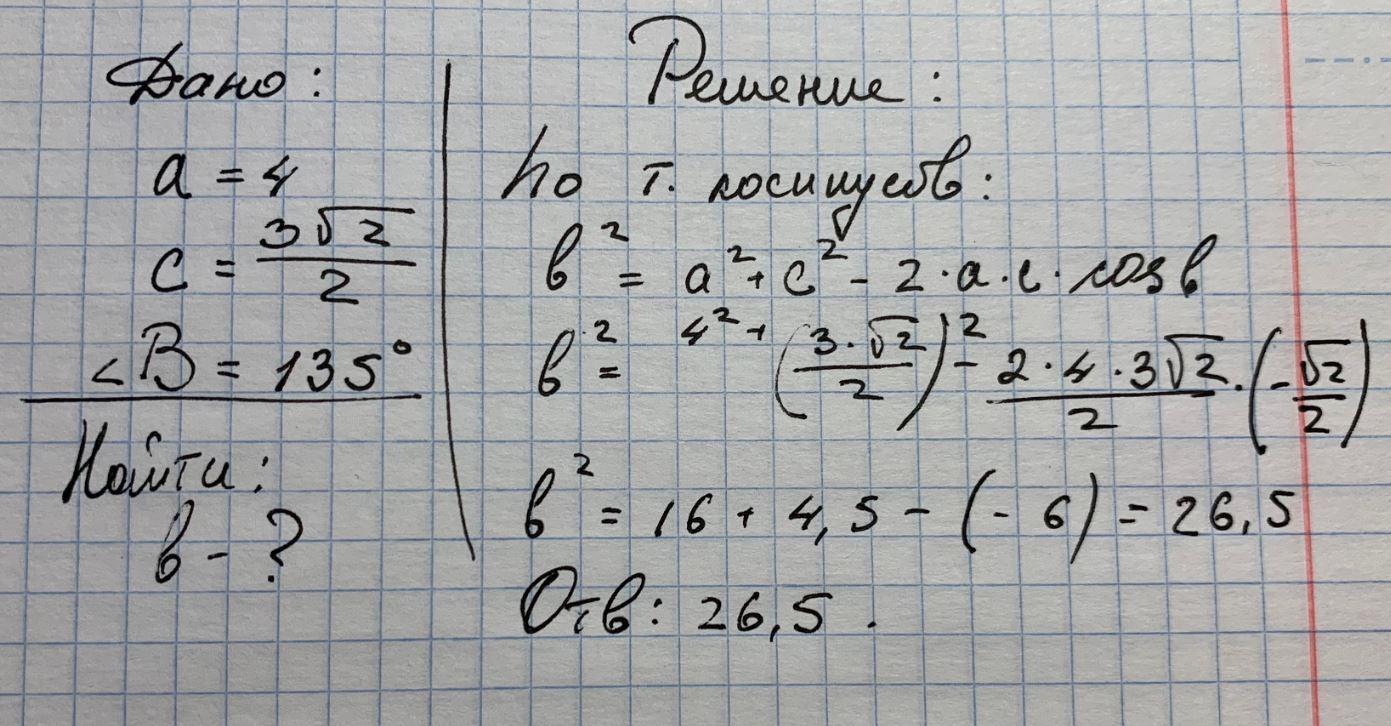 Дано:
a = 4
c = 3√2/2
∠B = 135°
Найти:
в - ?
Решение:
По т. косинусов:
в² = a² + c² - 2·a·c·cosв
в² = 4² + (3·√2/2)² - 2·4·3√2/2·(-√2/2)
в² = 16 + 4,5 - (-6) = 26,5
Отв: 26,5.